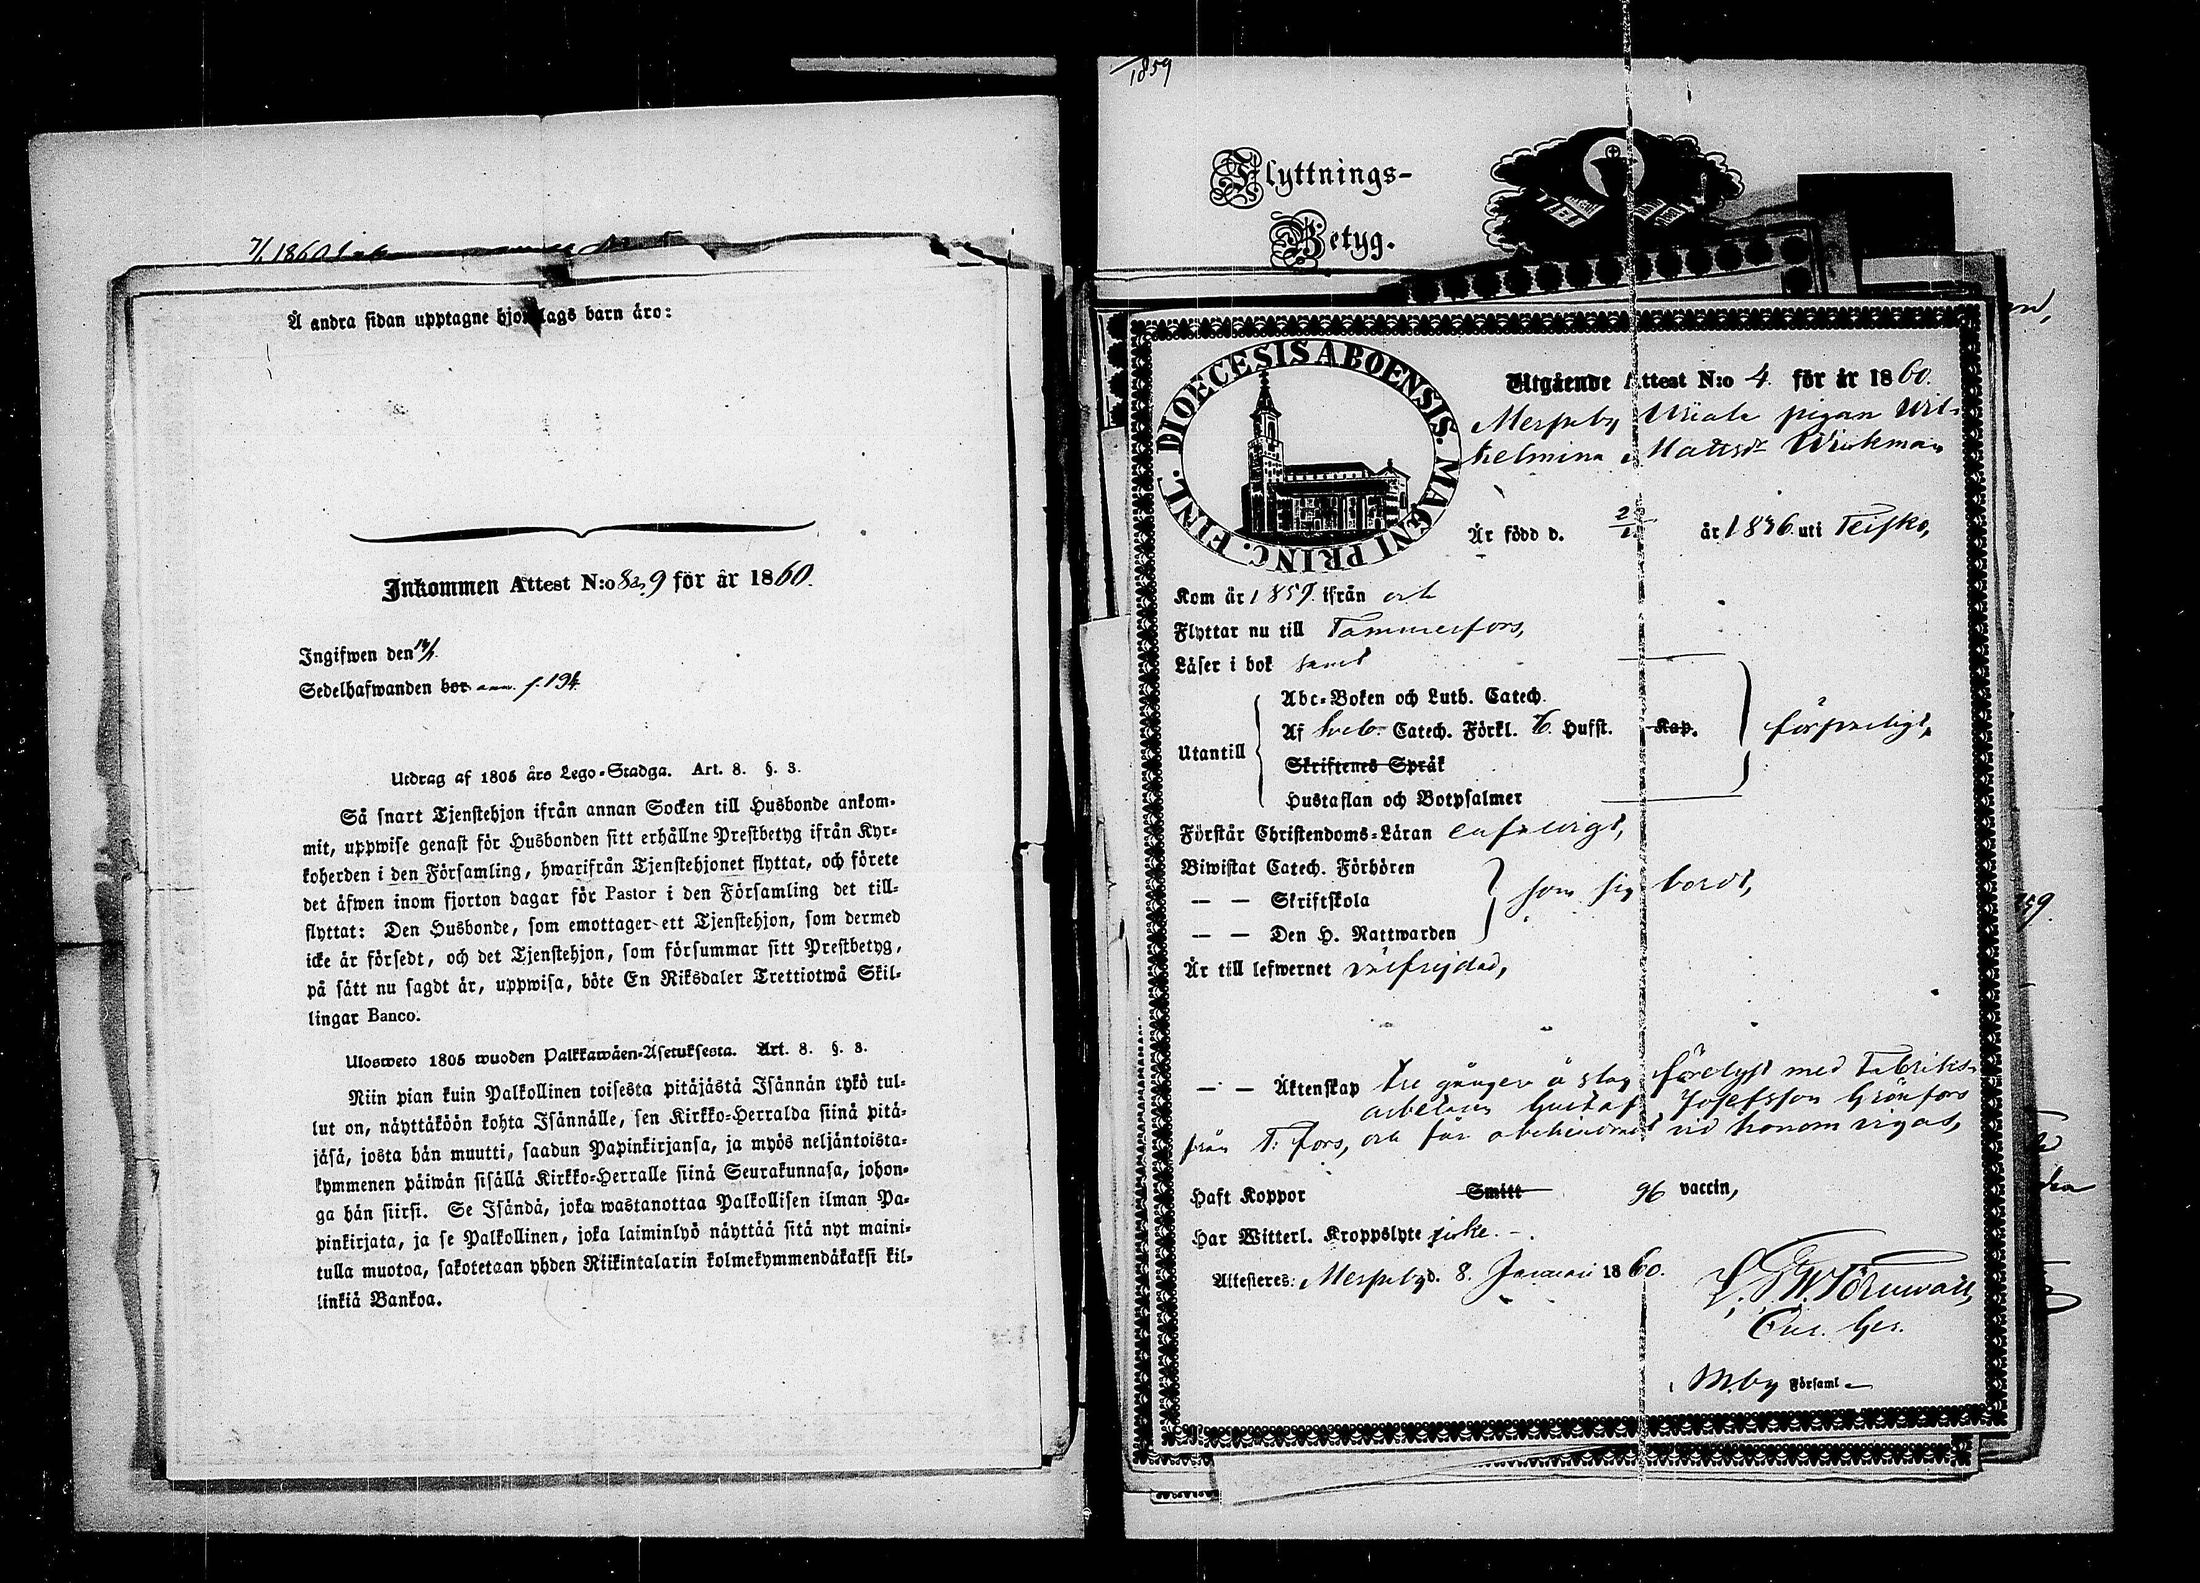 7/1 1860
Å andra sidan upptagne hjonlags barn äro:
Inkommen Attest N:o 8 9 för år 1860.
Ingifwen den
Sedelhafwanden bor ann. f. 194.
Utdrag af 1805 års Lego-Stadga. Art. 8. §. 3.
Så snart Tjenstehjon ifrån annan Socken till Husbonde ankom-
mit, uppwise genast för Husbonden sitt erhållne Prestbetyg ifrån Kyr-
koherden i den Församling, hwarifrån Tjenstehjonet flyttat, och förete
det äfwen inom fjorton dagar för Pastor i den Församling det till-
flyttat: Den Husbonde, som emottager ett Tjenstehjon, som dermed
icke är försedt, och det Tjenstehjon, som försummar sitt Prestbetyg,
på sätt nu sagdt är, uppwisa, böte En Riksdaler Trettiotwå Skil-
lingar Banco.
Ulosweto 1805 wuoden Palkkawäen-Asetuksesta. Art. 8. §. 3.
Niin pian kuin Palkollinen toisesta pitäjästä Isännän tykö tul-
lut on, näyttäköön kohta Isännälle, sen Kirkko-Herralda siinä pitä-
jäsä, josta hän muutti, saadun Papinkirjansa, ja myös neljäntoista-
kymmenen päiwän sisällä Kirkko-Herralle siinä Seurakunnasa, johon-
ga hän siirsi. Se Isändä, joka wastanottaa Palkollisen ilman Pa-
pinkirjata, ja se Palkollinen, joka laiminlyö näyttää sitä nyt maini-
tulla muotoa, sakotetaan yhden Riikintalarin kolmekymmendäkaksi kil-
linkiä Bankoa.
1859
Flyttnings-
Betyg.
DIOECESIS ABOENSIS. MAGNI PRINC. FINL.
Utgående Attest N:o 4. för år 1860.
Messuby pigan Wil-
helmina Mattsdr Wickman
Är född d. år 1836 uti Teisko,
Kom år 1859. ifrån
Flyttar nu till Tammerfors,
Läser i bok samt
Utantill
Abc-Boken och Luth. Catech.
Af Sveb. Catech. Förkl. 6. Hufst. Kap.
Skriftenes Språk
Hustaflan och Botpsalmer
förswarligt,
Förstår Christendoms-Läran enfaldigt,
Biwistat Catech. Förhören
— — Skriftskola
— — Den H. Nattwarden
som sig bordt,
Är till lefwernet välfrejdad,
— — Äktenskap tre gånger å slag förelyst med Fabriks-
arbetaren Gustaf Josefsson Grönfors
från T:fors, och får obehindrat vid honom vigas,
Haft Koppor Smitt vaccin,
Har Witterl. Kroppslyte icke. -.
Attesteras: Messuby d. 8. Januari 1860.
Törnwall,
M.by Församl